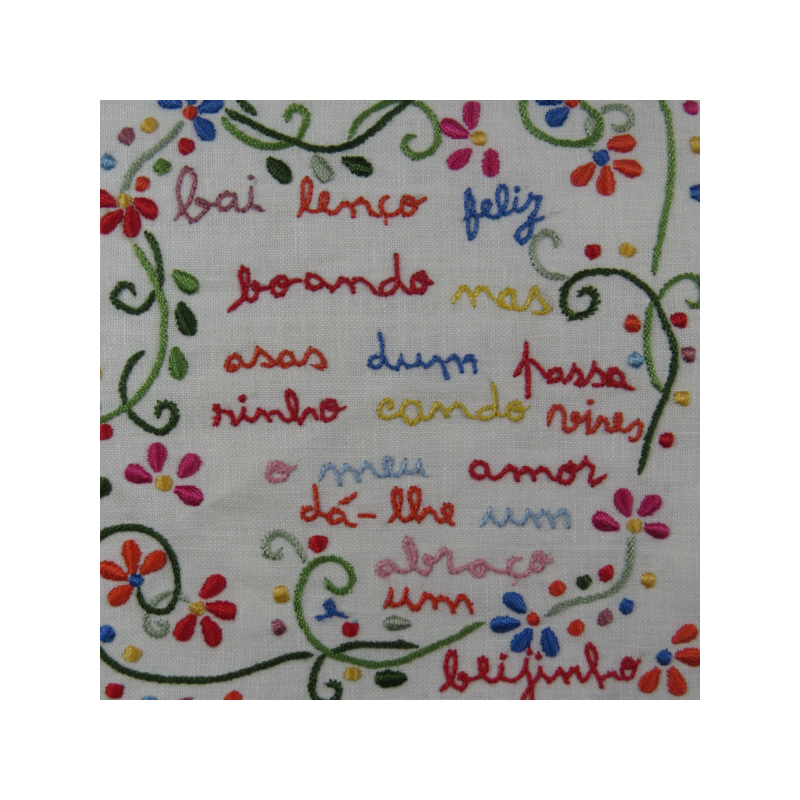 bai lenço feliz
boando nas
asas dum passa
rinho cando vires
o meu amor
dá-lhe um
abraço
e um
beijinho